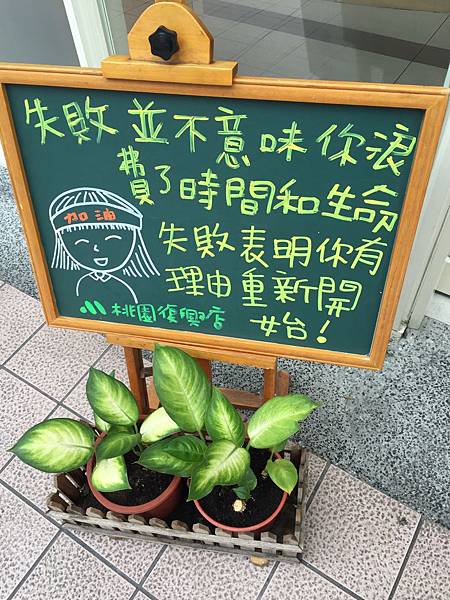 失敗並不意味你浪
費了時間和生命
失敗表明你有
理由重新開
始！
加油
桃園復興店